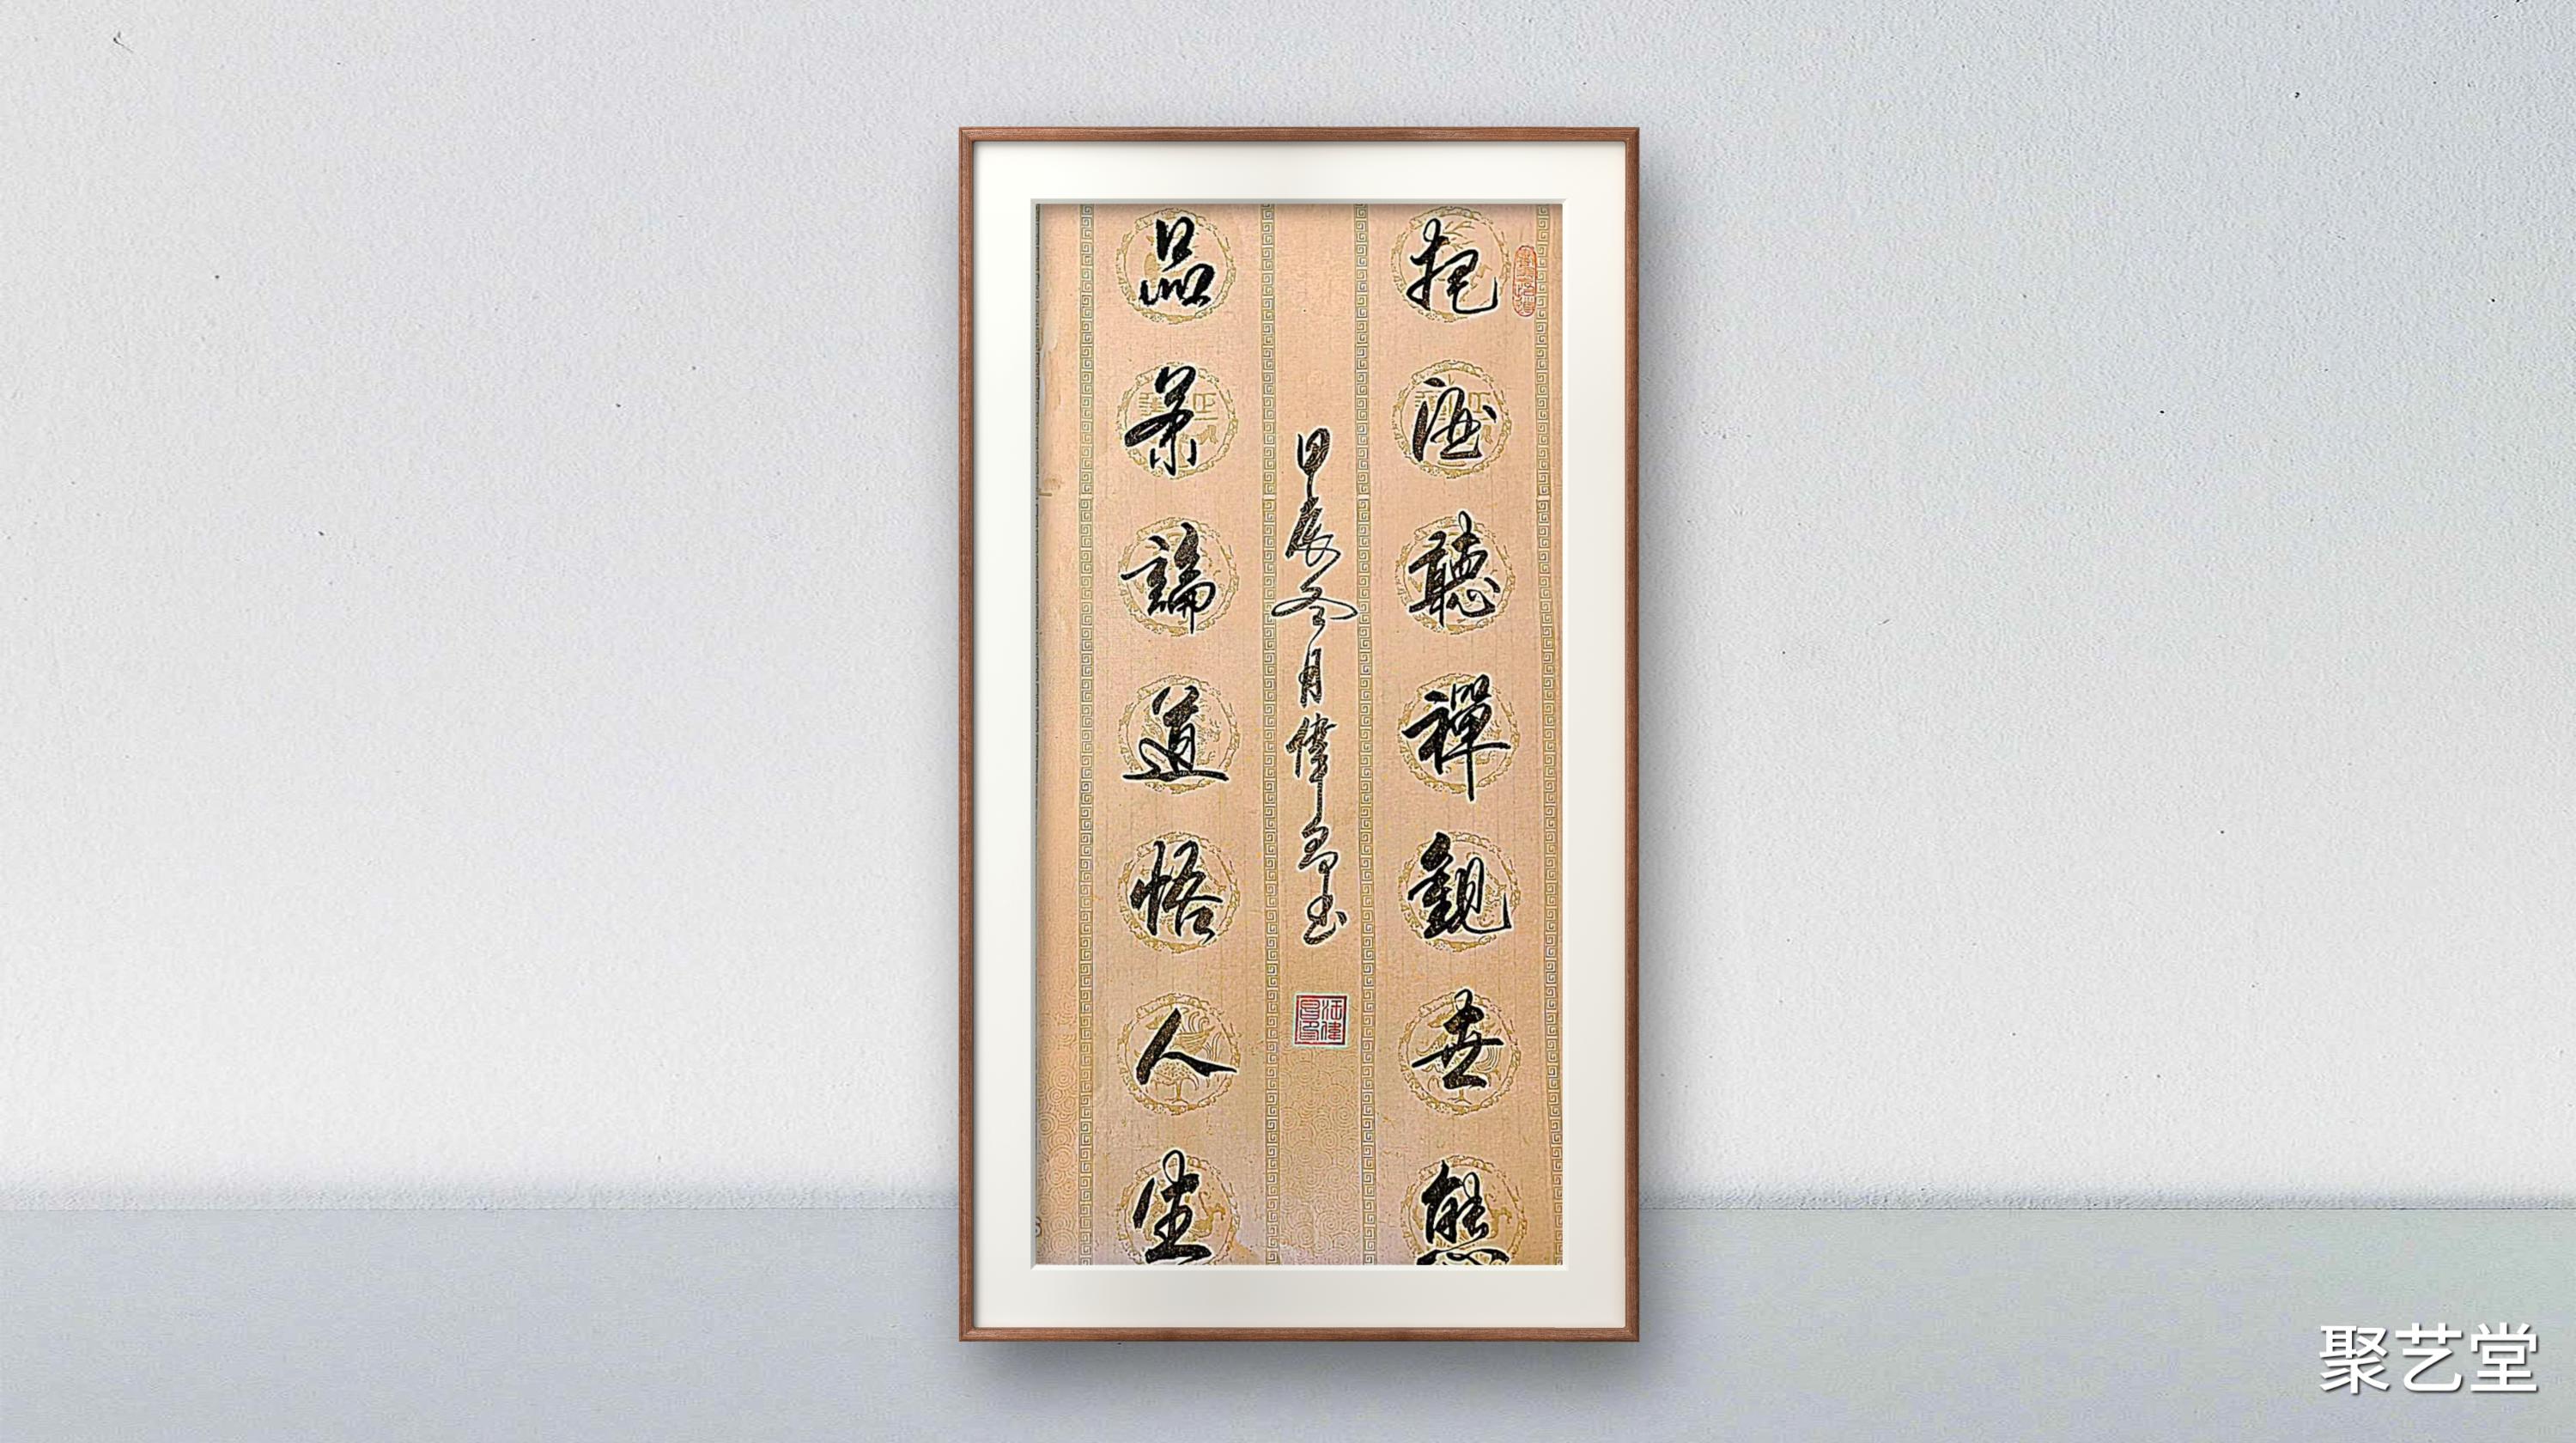 把酒聽禪觀世態
甲辰冬月偉昌书
品茶論道悟人生
聚艺堂